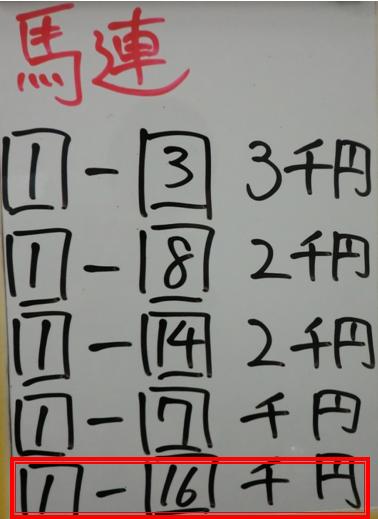 馬連
1 - 3 3千円
1 - 8 2千円
1 - 14 2千円
1 - 7 千円
1 - 16 千円